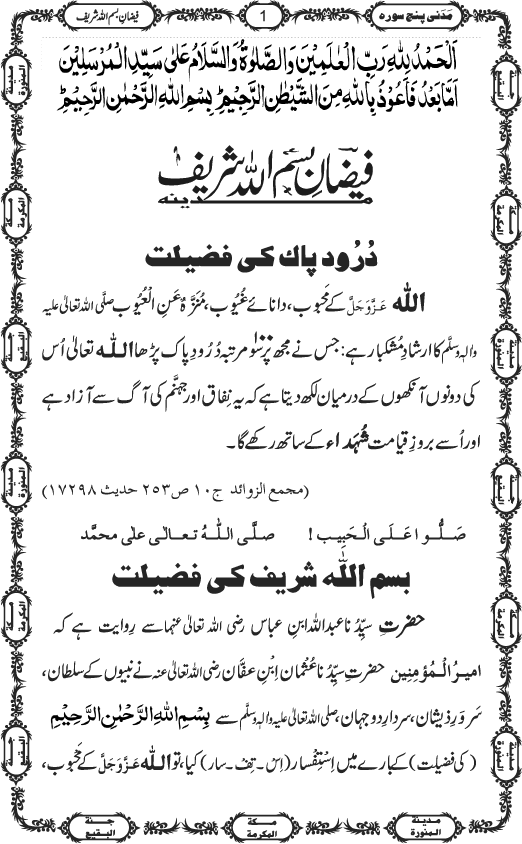 مَدَنی پنج سورہ
1
فیضانِ بسم اللہ شریف
اَلْحَمْدُ لِلّٰہِ رَبِّ الْعٰلَمِیْنَ وَالصَّلٰوۃُ وَالسَّلَامُ عَلٰی سَیِّدِ الْمُرْسَلِیْنَ
اَمَّا بَعْدُ فَاَعُوْذُ بِاللّٰہِ مِنَ الشَّیْطٰنِ الرَّجِیْمِؕ بِسْمِ اللّٰہِ الرَّحْمٰنِ الرَّحِیْمِؕ
فیضانِ بسم اللہ شریف
مدینہ
دُرُود پاک کی فضیلت
اللہ عَزَّوَجَلَّ کے مَحبوب، دانائے غُیُوب، مُنَزَّہٌ عَنِ الْعُیُوب صلَّی اللہ تعالیٰ علیہ
واٰلہٖ وسلَّم کا ارشادِ مُشکبار ہے: جس نے مجھ پر سَو مرتبہ دُرُودِ پاک پڑھا اللہ تعالیٰ اُس
کی دونوں آنکھوں کے درمیان لکھ دیتا ہے کہ یہ نِفاق اور جہنَّم کی آگ سے آزاد ہے
اور اُسے بروزِ قیامت شُہَداء کے ساتھ رکھے گا۔
(مجمع الزوائد ج۱۰ ص۲۵۳ حدیث ۱۷۲۹۸)
صَلُّوا عَلَی الْحَبِیب ! صلَّی اللہُ تعالٰی علٰی محمَّد
بسم اللہ شریف کی فضیلت
حضرتِ سیِّدُنا عبداللہ ابنِ عباس رضی اللہ تعالیٰ عنہما سے رِوایت ہے کہ
امیرُ الْمُؤمِنین حضرتِ سیِّدُنا عُثمان اِبْنِ عفّان رضی اللہ تعالیٰ عنہ نے نبیوں کے سلطان،
سَروَرِ ذِیشان، سردارِ دو جہان، صلَّی اللہ تعالیٰ علیہ واٰلہٖ وسلَّم سے بِسْمِ اللّٰہِ الرَّحْمٰنِ الرَّحِیْمِ
(کی فضیلت) کے بارے میں اِسْتِفْسار (اِس۔تِف۔سار) کیا، تو اللہ عَزَّوَجَلَّ کے مَحبوب،
مدینۃ المنورۃ
مکۃ المکرمۃ
جنۃ البقیع
مدینۃ المنورۃ
مکۃ المکرمۃ
جنۃ البقیع
جنۃ البقیع
مکۃ المکرمۃ
مدینۃ المنورۃ
جنۃ البقیع
مکۃ المکرمۃ
مدینۃ المنورۃ
جنۃ البقیع
مکۃ المکرمۃ
مدینۃ المنورۃ